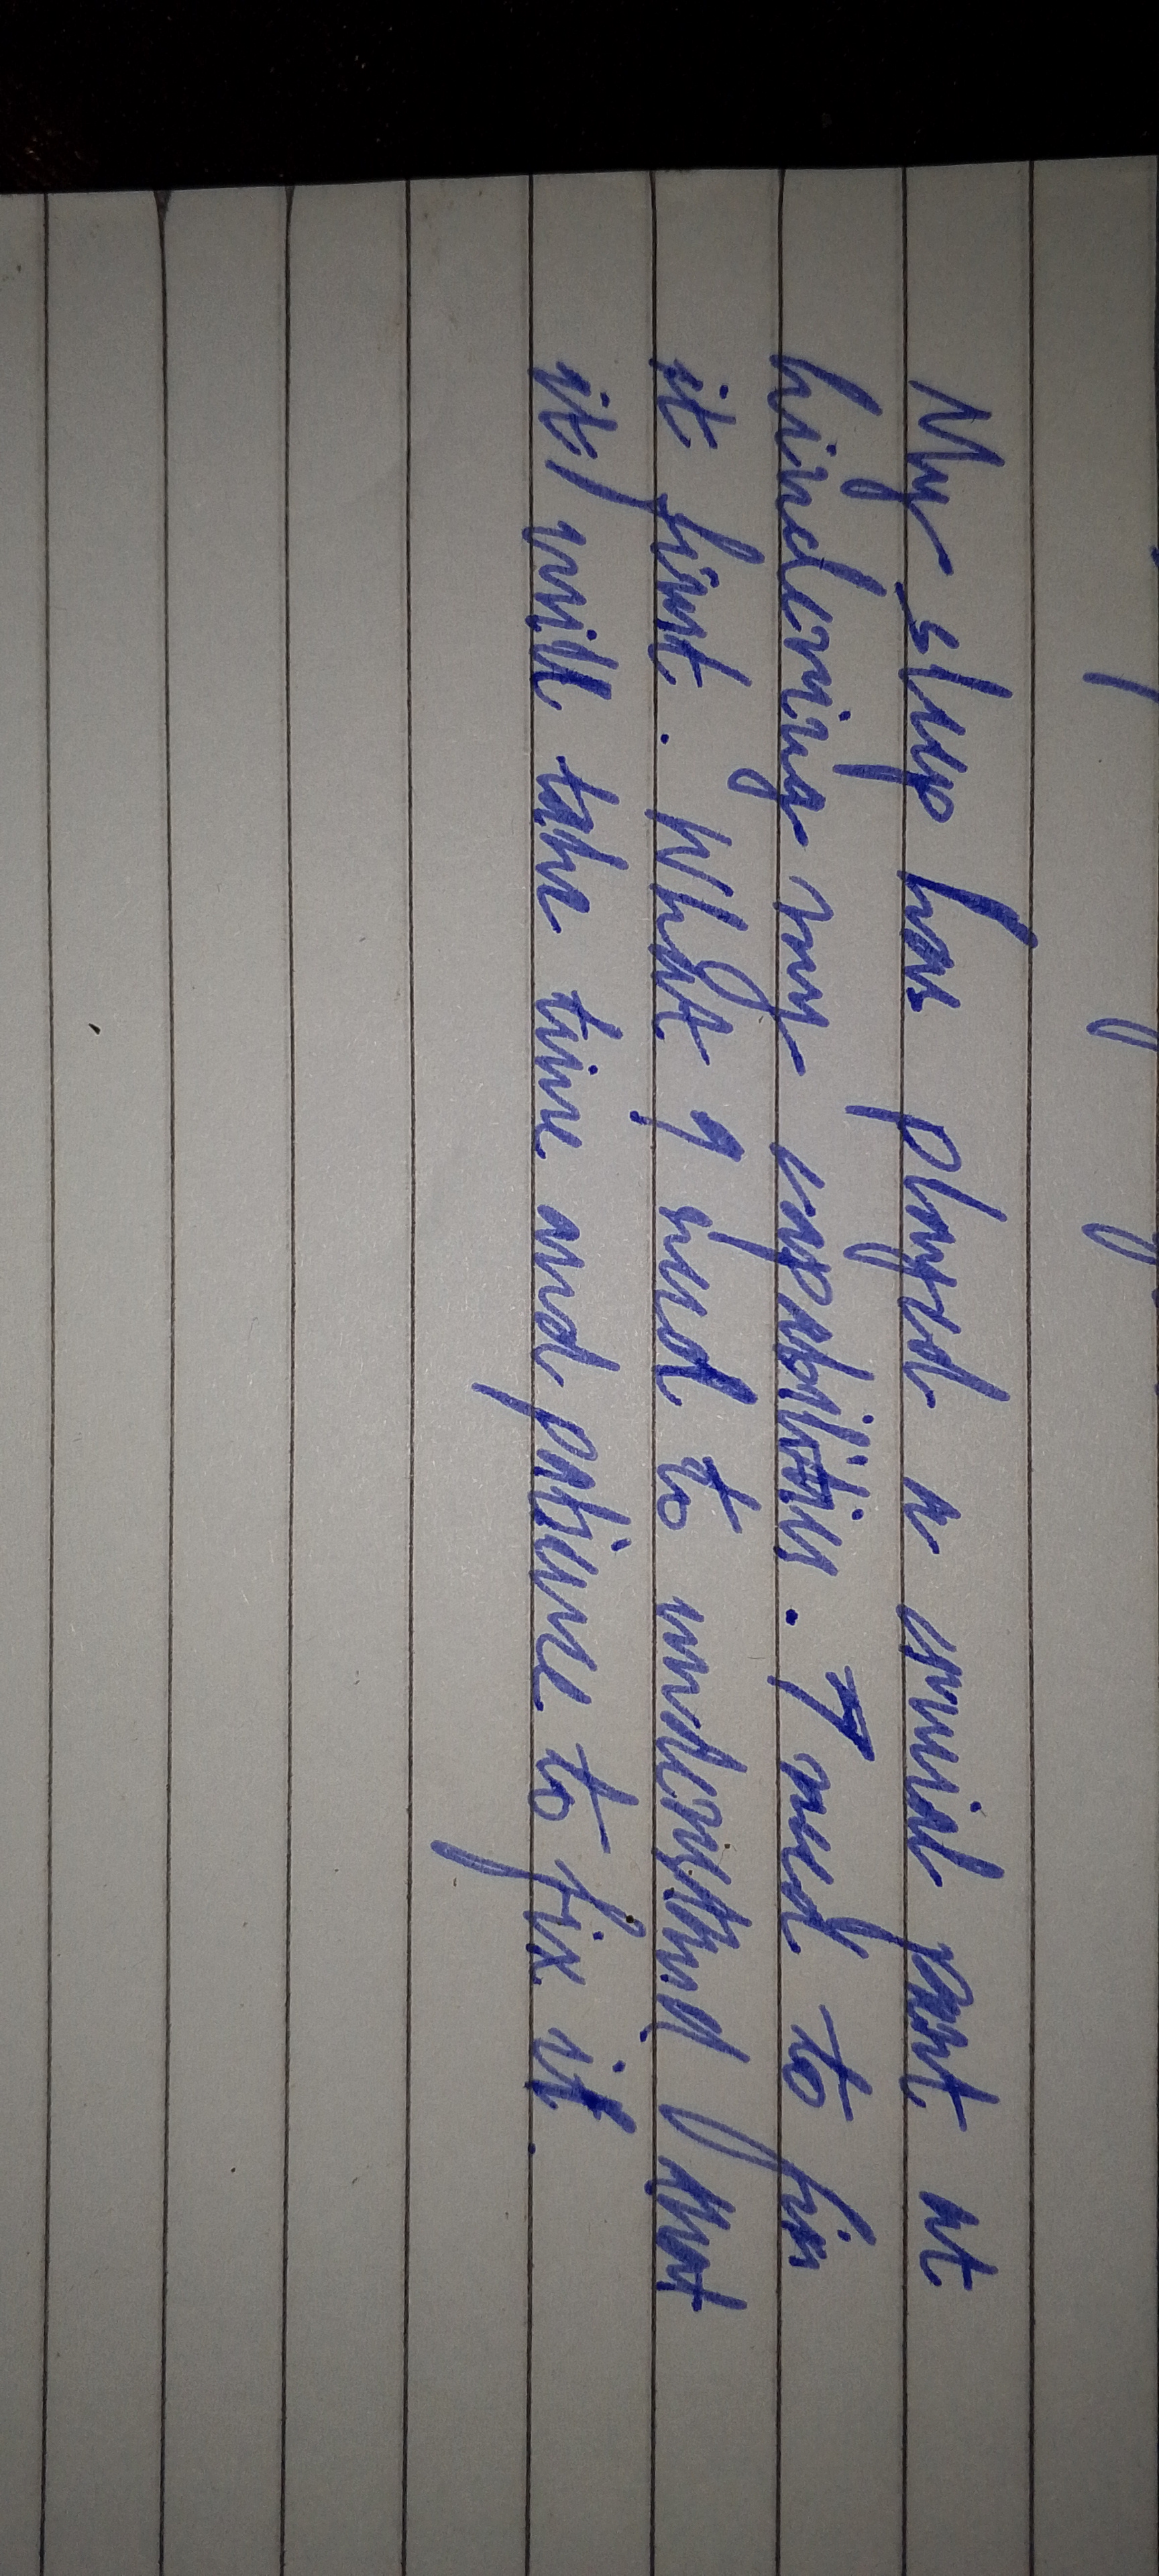 My sleep has played a crucial part at
hindering my capabilities. I need to fix
it first. What I need to understand that
it will take time and patience to fix it.